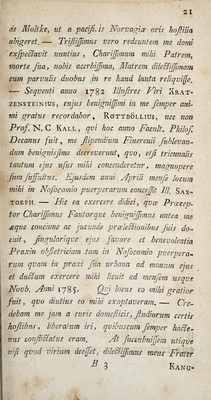 21
de Moltke, ut a pacific. is Norvagiæ oris hostilia
abigeret. — Tristissimus vero redeuntem me domi
exspectavit nuntius, Charissimum mihi Patrem,
morte sua, nobis acerbissima, Matrem dilectissimam
cum parvulis duobus in re haud lauta reliquisse.
— Sequenti anno 1782 Illustres Viri KRAT-
ZENSTEINIUS, cujus benignissimi in me semper ani-
mi gratus recordabor, ROTTBÖLLIUS, nec non
Prof. N. C KALL, qui hoc anno Facult. Philos.
Decanus fuit, me stipendium Finerenii sublevan-
dum benignissime decreverunt, quo, etsi triennalis
tantum ejus usus mihi concenderetur, magnopere
sum suffultus. Ejusdem anni Aprili mense locum
mihi in Nosocomio puerperarum concessit Ill. SAX-
TORPH. — Hic ea exercere didici, quæ Præcep-
tor Charissimus Fautorque benignissimus antea me
æque concinne ac jucunde prælectionibus suis do-
cuit, singularique ejus favore et benevolentia
Praxin obstetriciam tam in Nosocomio puerpera-
rum quam in praxi sua urbana ad manum ejus
et ductum exercere mihi licuit ad mensem usque
Novb. Anni 1785. Qui locus eo mihi gratior
fuit, quo diutius eo mihi exoptaveram. — Cre-
debam me jam a curis domesticis, studiorum certis
hostibus, liberatum iri, quibuscum semper hacte-
nus conflictatus eram. At succubuissem utique
nisi quod virium deesset, dilectissimus meus Frater
B 3
KANU-